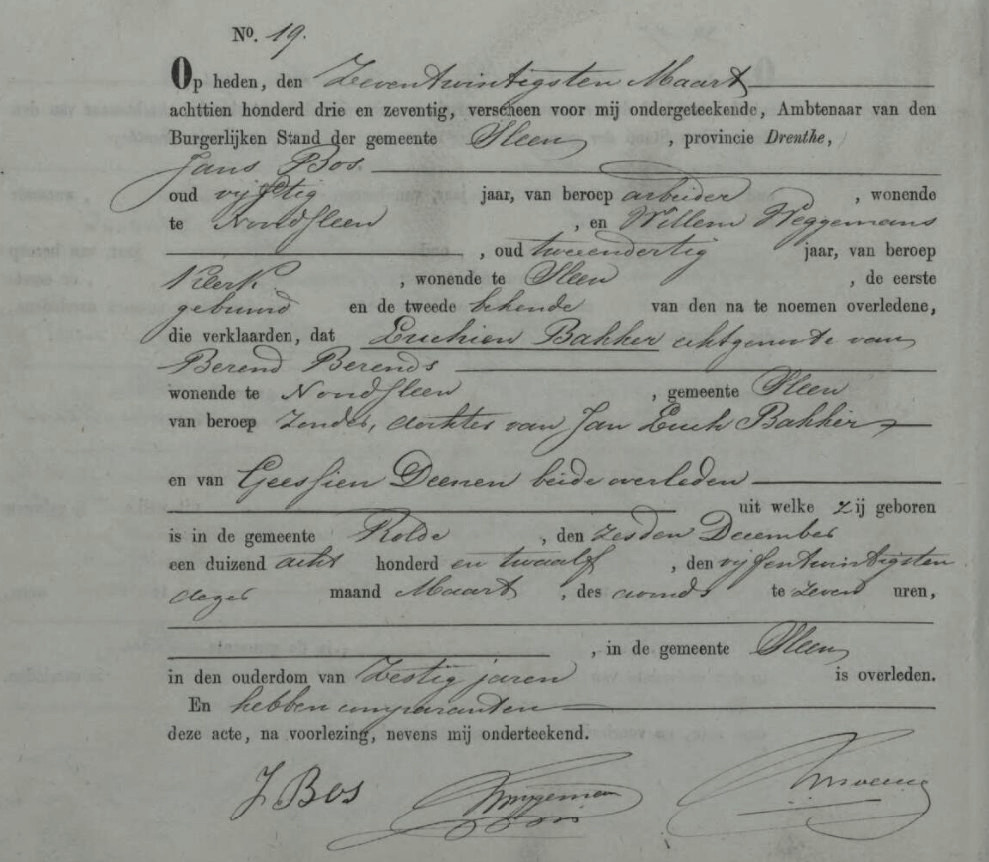 No. 19.
Op heden, den Zeventwintigsten Maart
achttien honderd drie en zeventig, verscheen voor mij ondergeteekende, Ambtenaar van den
Burgerlijken Stand der gemeente Sleen, provincie Drenthe,
Jans Bos.
oud vijftig jaar, van beroep arbeider, wonende
te Noordsleen, en Willem Weggemans
, oud tweeendertig jaar, van beroep
Klerk, wonende te Sleen, de eerste
gebuurd en de tweede bekende van den na te noemen overledene,
die verklaarden, dat Euchien Bakker echtgenoote van
Berend Berends
wonende te Noordsleen, gemeente Sleen
van beroep zonder, dochter van Jan Euch Bakker
en van Geessien Deenen beide overleden
uit welke zij geboren
is in de gemeente Rolde, den zesden December
een duizend acht honderd en twaalf, den vijfentwintigsten
dezer maand Maart, des avonds te zeven uren,
, in de gemeente Sleen
in den ouderdom van Zestig jaren is overleden.
En hebben comparanten
deze acte, na voorlezing, nevens mij onderteekend.
J Bos